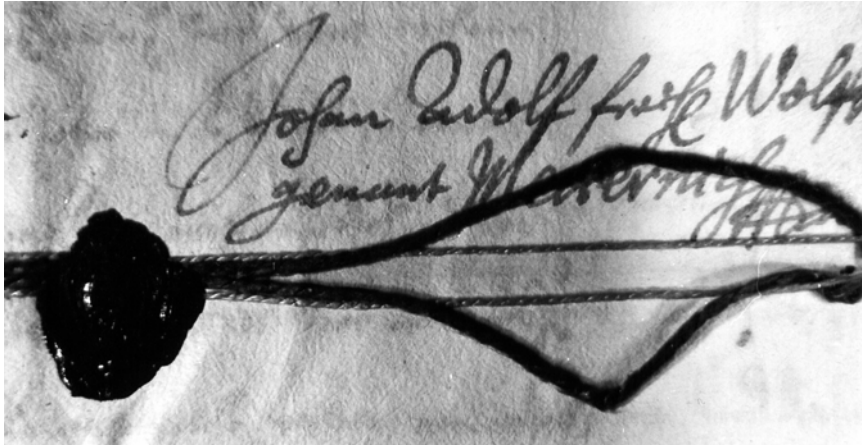 Johan Adolf freih Wolff
genant Metternich